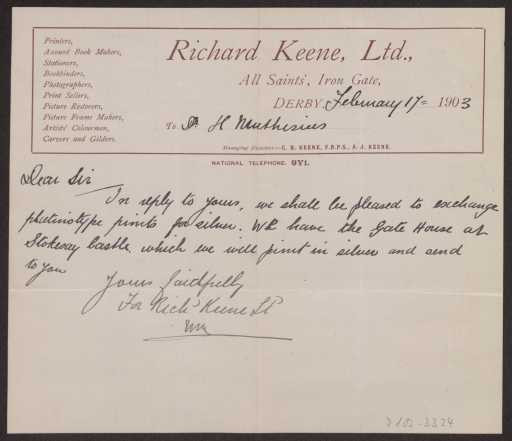 Printers,
Account Book Makers,
Stationers,
Bookbinders,
Photographers,
Print Sellers,
Picture Restorers,
Picture Frame Makers,
Artists' Colourmen,
Carvers and Gilders.
Richard Keene, Ltd.,
All Saints', Iron Gate,
DERBY, February 17 1903
To Dr H Muthesius
Managing Directors—C. B. KEENE, F.R.P.S., A. J. KEENE.
NATIONAL TELEPHONE. 9Y1.
Dear Sir
In reply to yours, we shall be pleased to exchange
platinotype prints for silver. We have the Gate House at
Stokesay Castle which we will print in silver and send
to you
Yours faithfully
For Richd Keene Ld